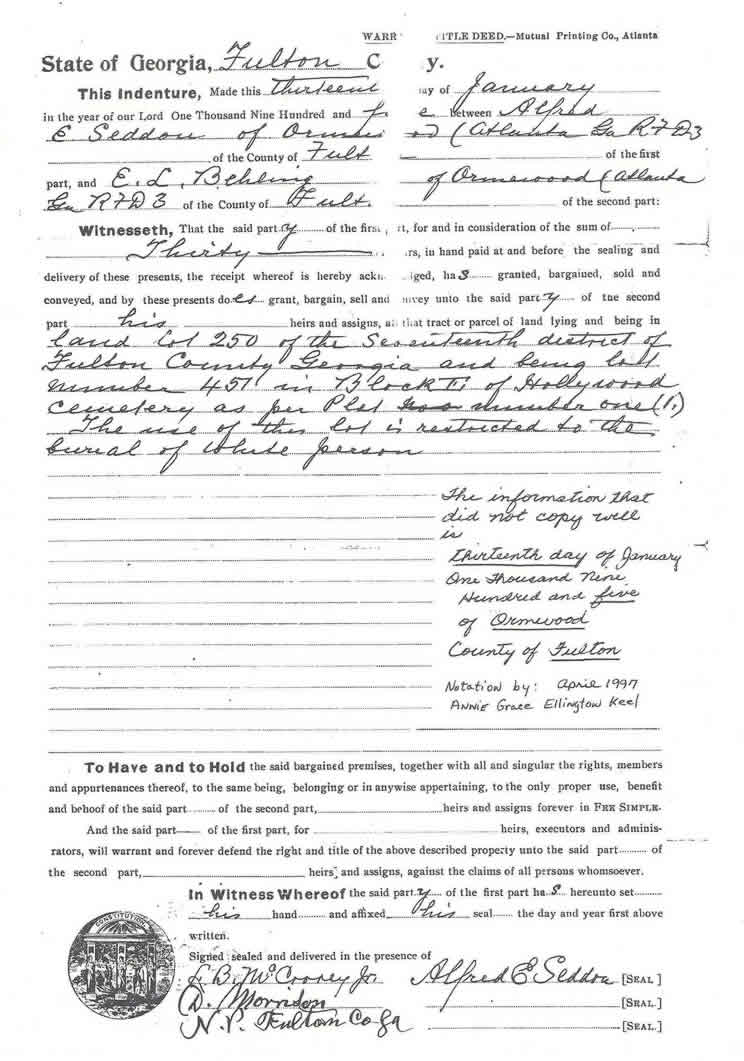 WARR TITLE DEED.—Mutual Printing Co., Atlanta
State of Georgia, Fulton C y.
This Indenture, Made this thirteent ay of January
in the year of our Lord One Thousand Nine Hundred and f e between Alfred
E Seddon of Ormew od (Atlanta Ga RFD3
of the County of Fult of the first
part, and E. L. Behling of Ormewood (Atlanta
Ga RFD 3 of the County of Fult. of the second part:
Witnesseth, That the said party of the first rt, for and in consideration of the sum of
Thirty rs, in hand paid at and before the sealing and
delivery of these presents, the receipt whereof is hereby ackn ged, has granted, bargained, sold and
conveyed, and by these presents does grant, bargain, sell and nvey unto the said party of the second
part his heirs and assigns, all that tract or parcel of land lying and being in
land lot 250 of the Seventeenth district of
Fulton County Georgia and being lot
number 451 in Block of Hollywood
Cemetery as per Plat number one (1.)
The use of this lot is restricted to the
burial of White person
The information that
did not copy well
is
thirteenth day of January
One Thousand Nine
Hundred and five
of Ormewood
County of Fulton
Notation by: April 1997
Annie Grace Ellington Keel
To Have and to Hold the said bargained premises, together with all and singular the rights, members
and appurtenances thereof, to the same being, belonging or in anywise appertaining, to the only proper use, benefit
and behoof of the said part of the second part, heirs and assigns forever in FEE SIMPLE.
And the said part of the first part, for heirs, executors and adminis-
trators, will warrant and forever defend the right and title of the above described property unto the said part of
the second part, heirs, and assigns, against the claims of all persons whomsoever.
In Witness Whereof the said party of the first part has hereunto set
his hand and affixed his seal the day and year first above
written.
Signed sealed and delivered in the presence of
L. B. McCroovey Jr. Alfred E Seddon [SEAL]
D. Morrison [SEAL.]
N. P. Fulton Co Ga [SEAL.]
CONSTITUTION